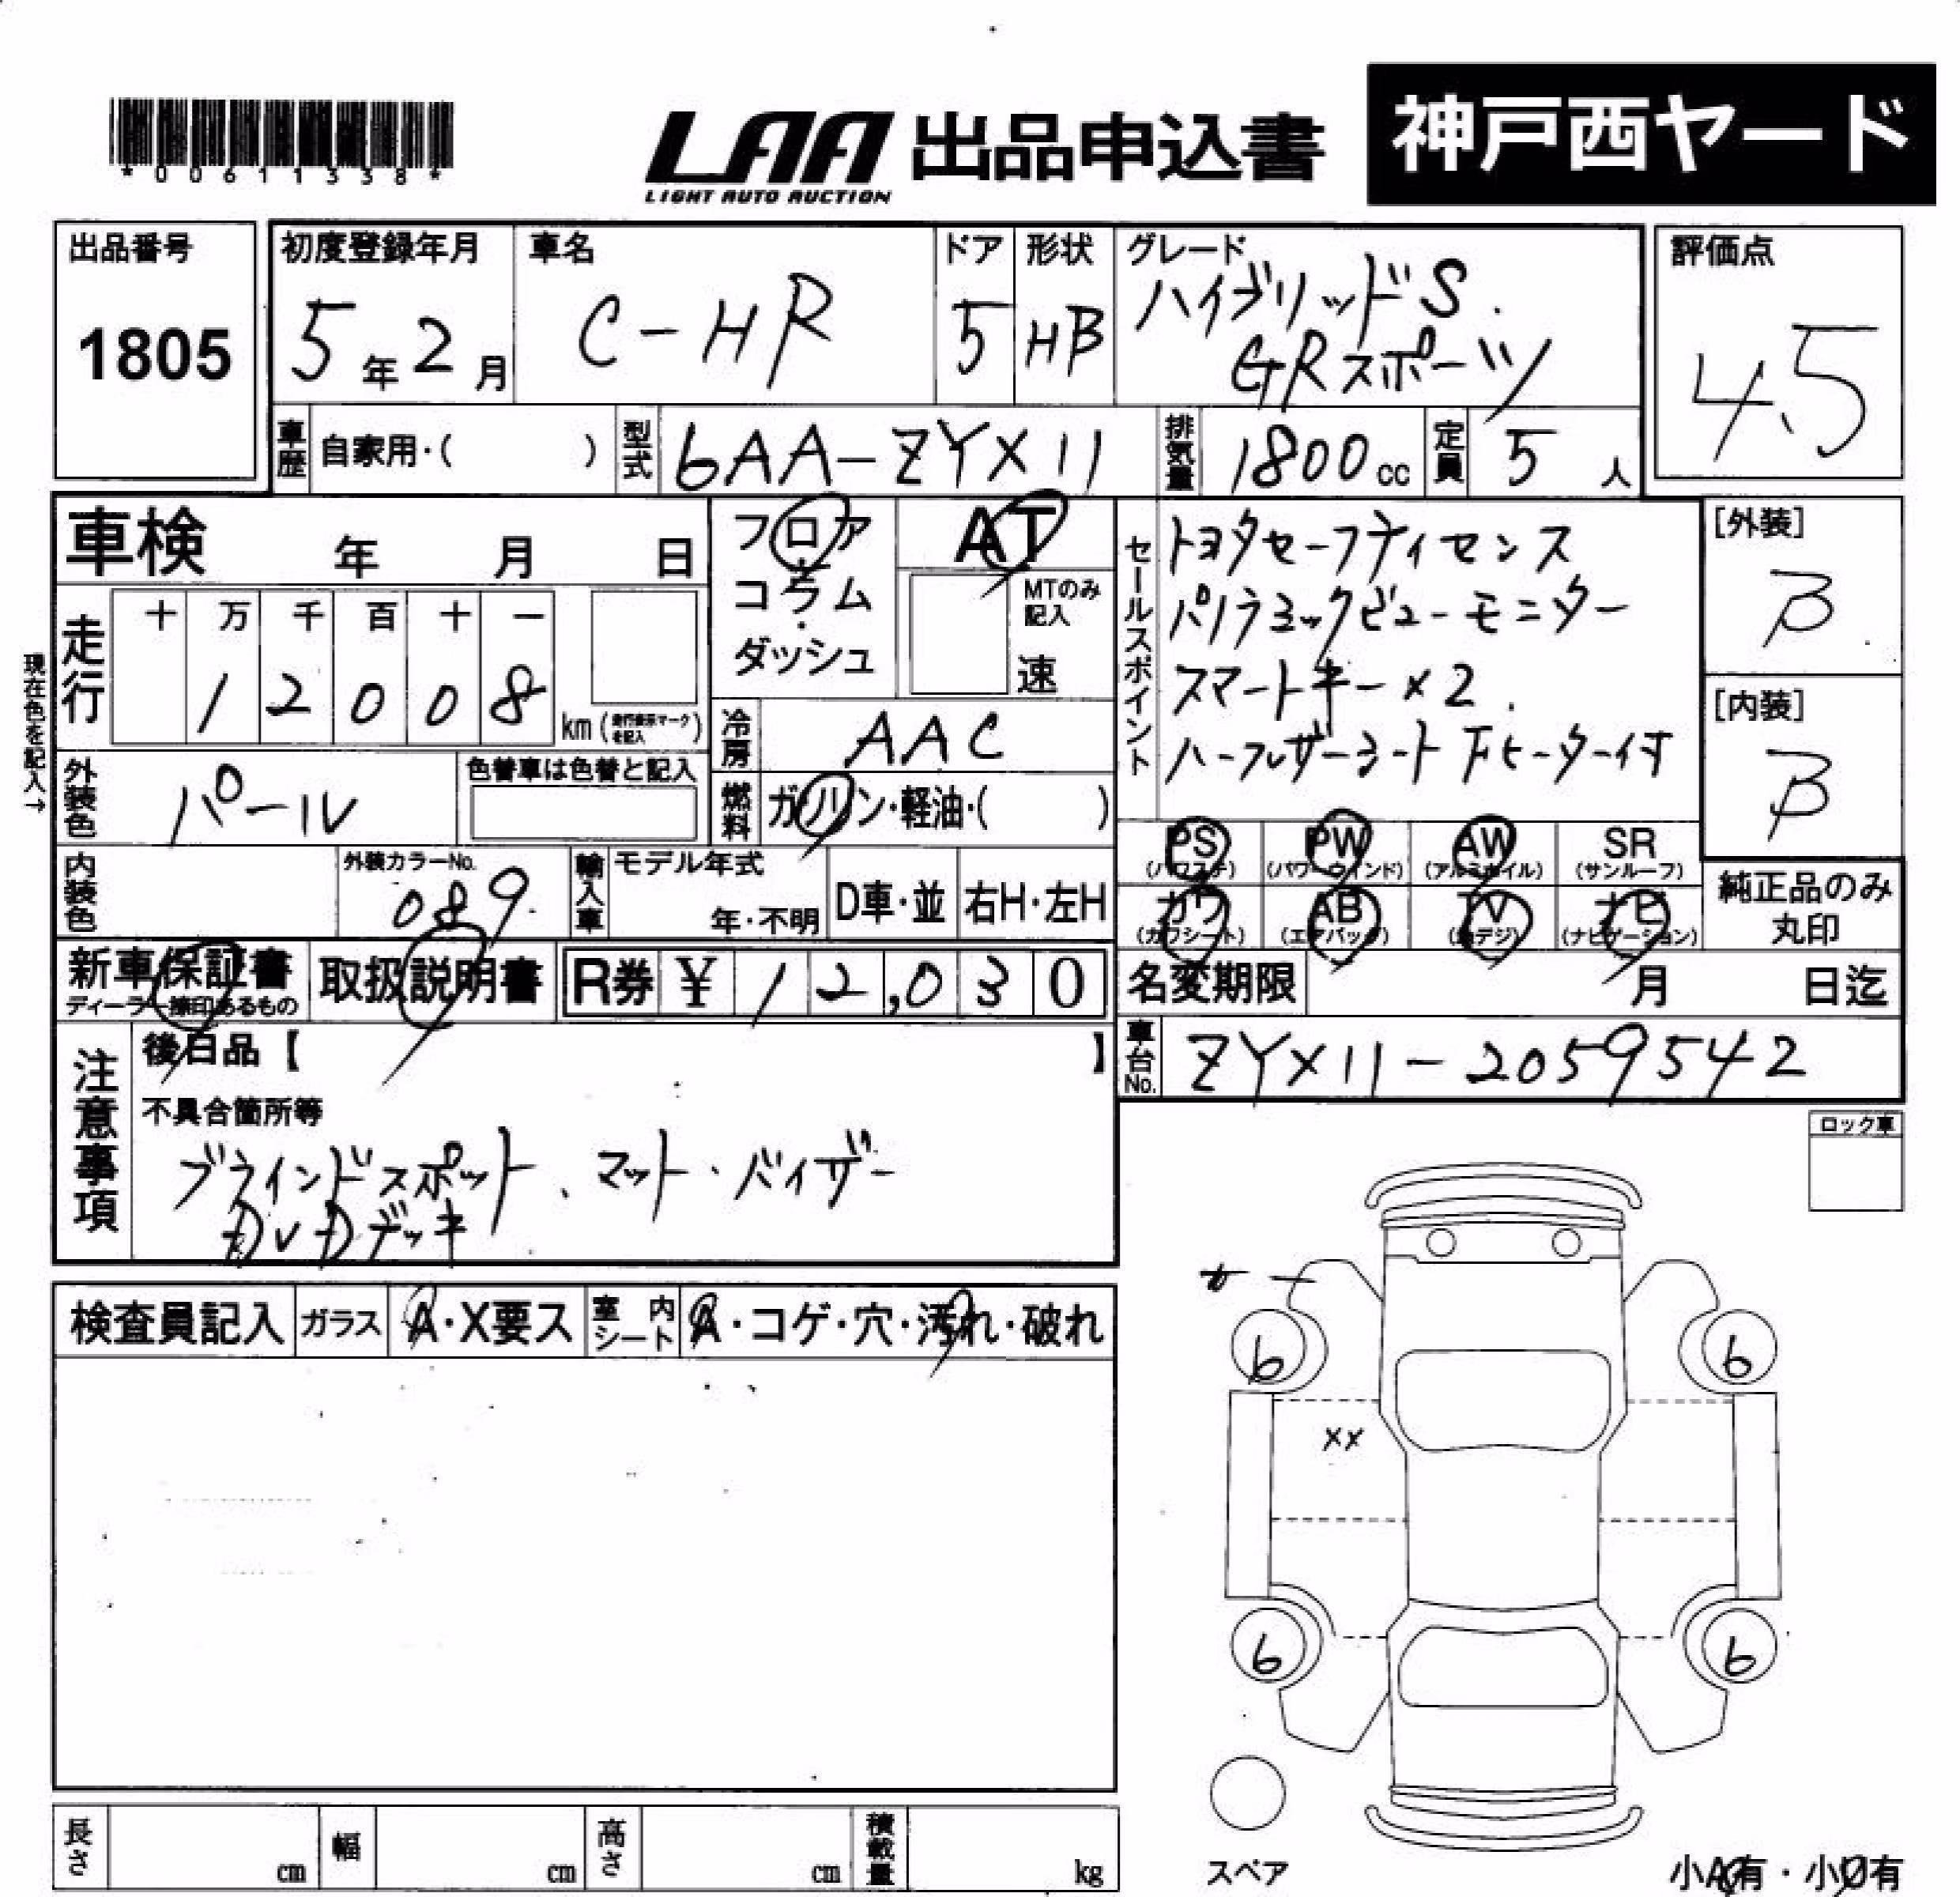 *00611338*
LAA 出品申込書
LIGHT AUTO AUCTION
神戸西ヤード
出品番号
1805
初度登録年月
5年2月
車名
C-HR
ドア
5
形状
HB
グレード
ハイブリッドS
GRスポーツ
評価点
4.5
車歴
自家用・( )
型式
6AA-ZYX11
排気量
1800cc
定員
5人
車検 年 月 日
フロア
・
コラム
・
ダッシュ
AT
MTのみ
記入
速
セールスポイント
トヨタセーフティセンス
パノラミックビューモニター
スマートキー×2.
ハーフレザーシート 下ヒーター付
[外装]
B
[内装]
B
現在色を記入→
走行
十 万 千 百 十 一
1 2 0 0 8
km(走行表示マークを記入)
冷房
AAC
外装色
パール
色替車は色替と記入
燃料
ガソリン・軽油・( )
PS
(パワステ)
PW
(パワーウインド)
AW
(アルミホイル)
SR
(サンルーフ)
カワ
(カワシート)
AB
(エアバッグ)
TV
ナビ
(ナビゲーション)
純正品のみ
丸印
内装色
外装カラーNo.
089
輸入車
モデル年式
年・不明
D車・並
右H・左H
新車保証書
ディーラー捺印あるもの
取扱説明書
R券 ¥ 12,030
名変期限 月 日迄
車台No.
ZYX11-2059542
注意事項
後日品【 】
不具合箇所等
ブラインドスポット、マット・バイザー
DVDデッキ
ロック車
検査員記入
ガラス
A・X要ス
室内シート
A・コゲ・穴・汚れ・破れ
6
6
××
6
6
スペア
長さ cm
幅 cm
高さ cm
積載量 kg
小A有・小U有